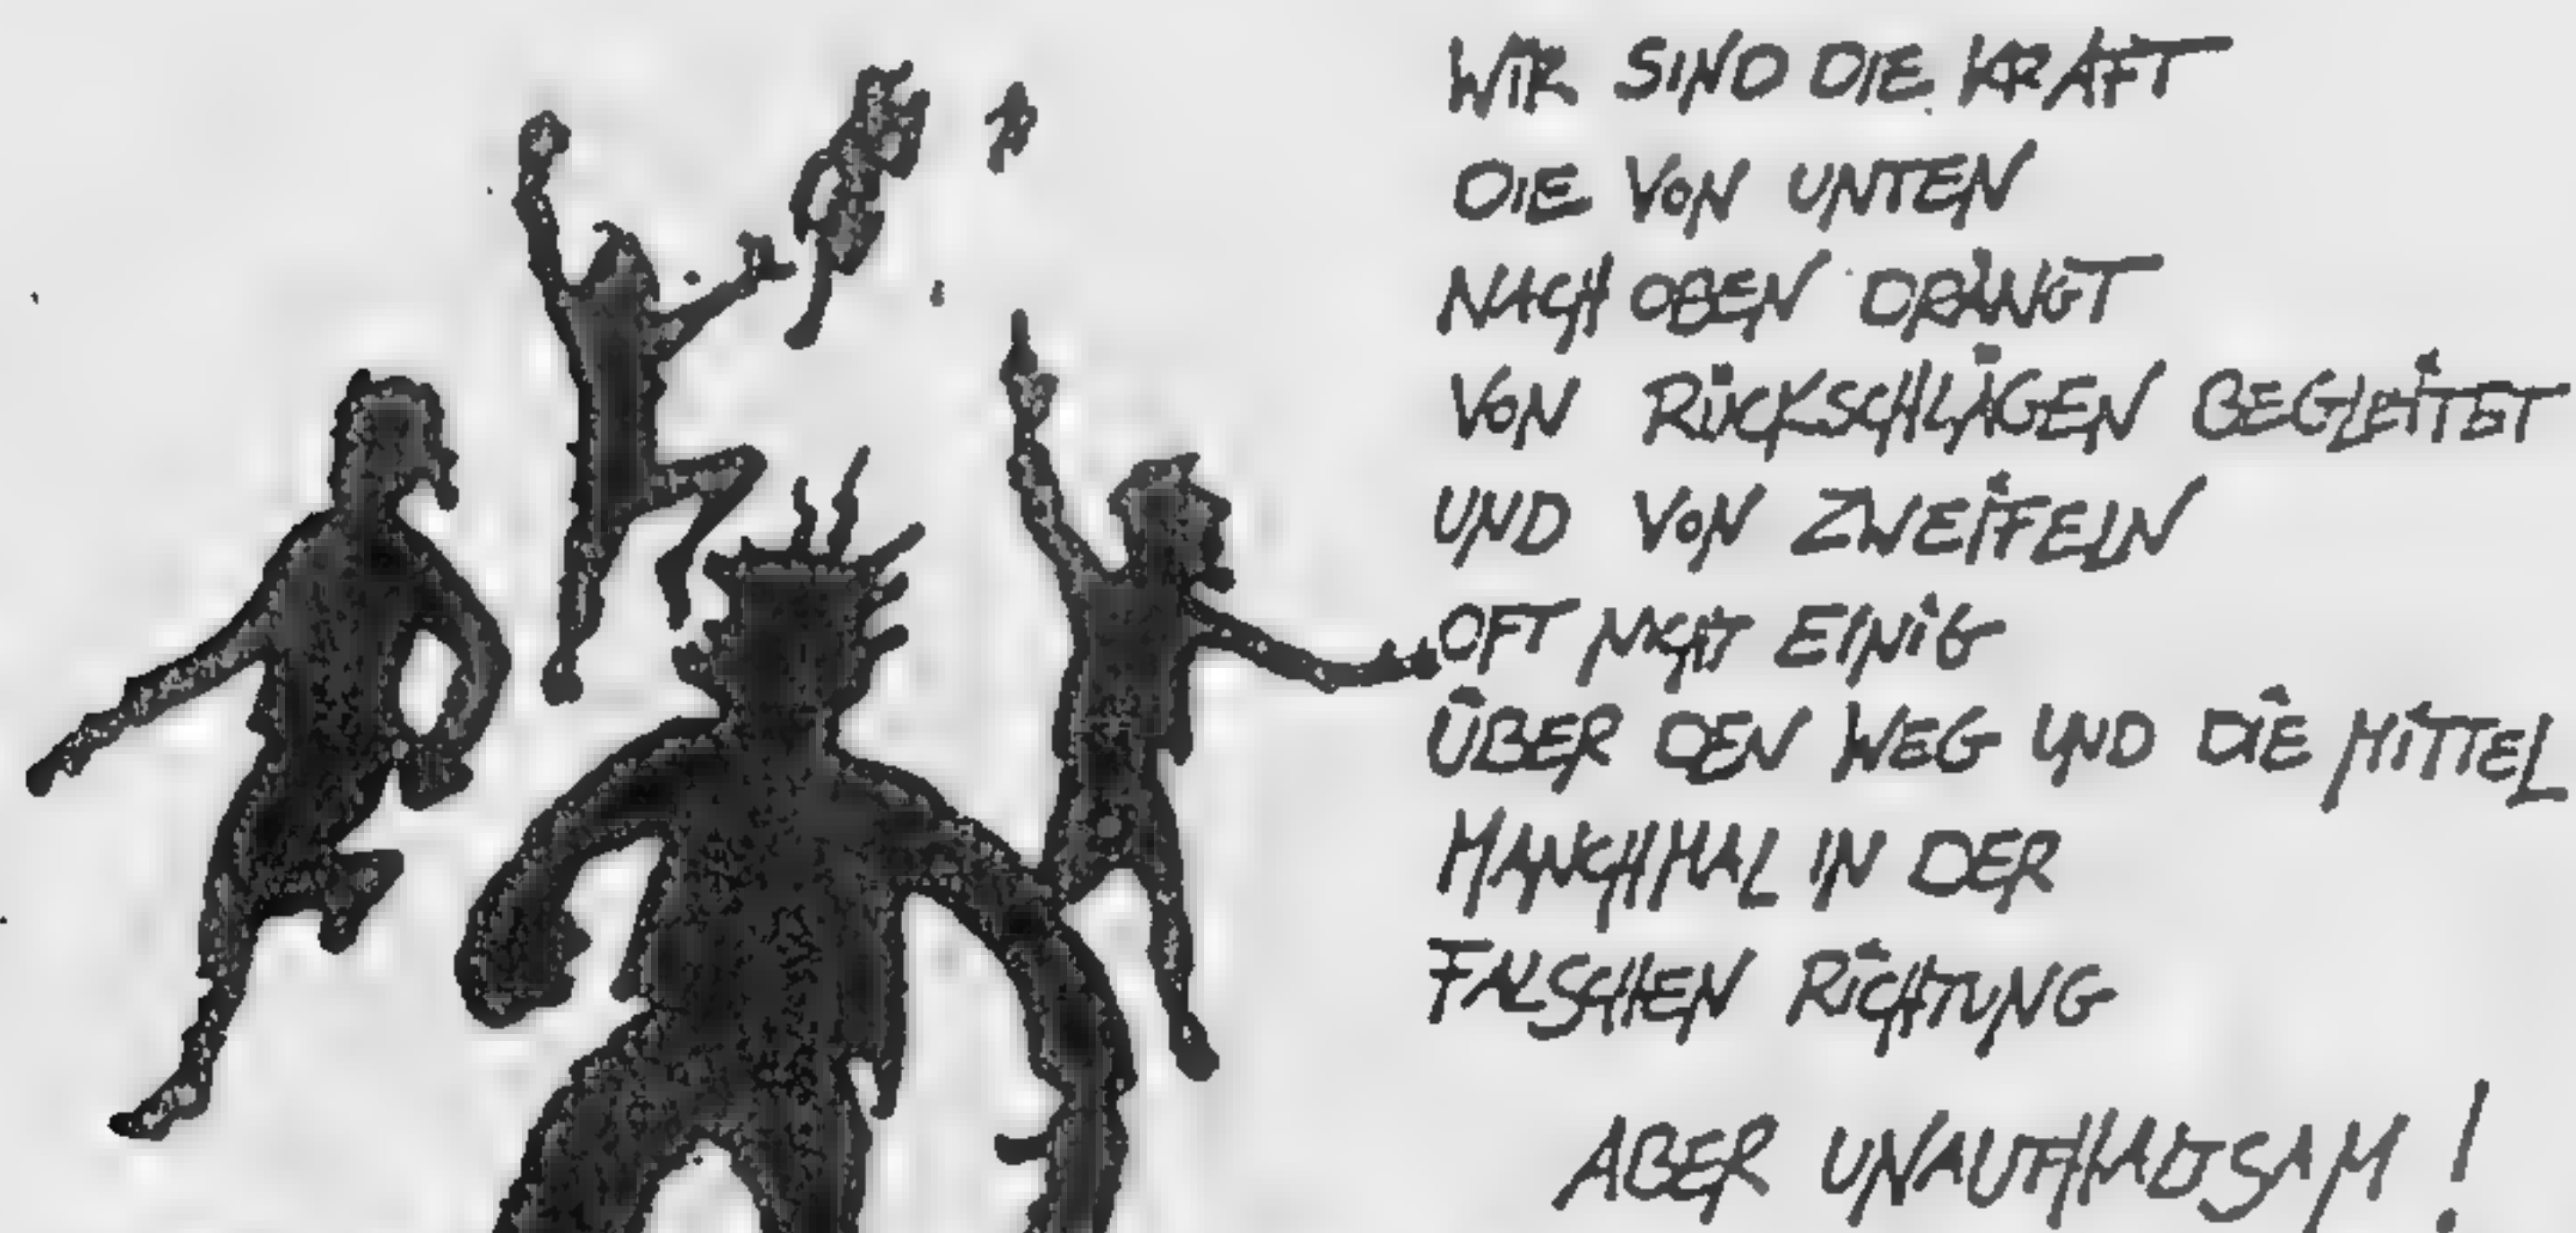 WIR SIND DIE KRAFT
DIE VON UNTEN
NACH OBEN DRÄNGT
VON RÜCKSCHLÄGEN BEGLEITET
UND VON ZWEIFELN
OFT NICHT EINIG
ÜBER DEN WEG UND DIE MITTEL
MANCHMAL IN DER
FALSCHEN RICHTUNG
ABER UNAUFHALTSAM!